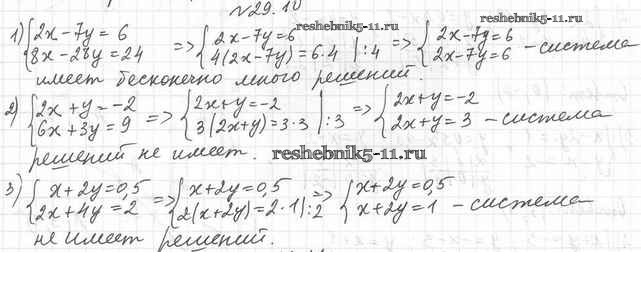 №29.10
reshebnik5-11.ru reshebnik5-11.ru
1) {2x-7y=6 => {2x-7y=6 => {2x-7y=6
{8x-28y=24 {4(2x-7y)=6·4 |:4 {2x-7y=6 - система
имеет бесконечно много решений.
2) {2x+y=-2 => {2x+y=-2 => {2x+y=-2
{6x+3y=9 {3(2x+y)=3·3 |:3 {2x+y=3 - система
решений не имеет. reshebnik5-11.ru
3) {x+2y=0,5 => {x+2y=0,5 => {x+2y=0,5
{2x+4y=2 {2(x+2y)=2·1 |:2 {x+2y=1 - система
не имеет решений.